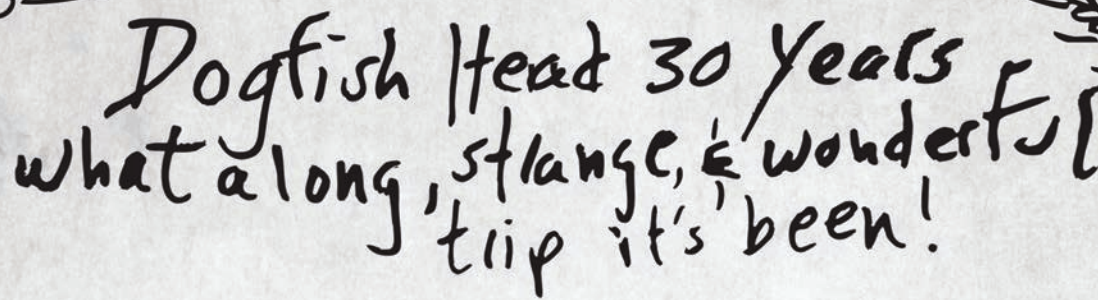 Dogfish Head 30 Years
what a long, strange, & wonderful
trip it's been!